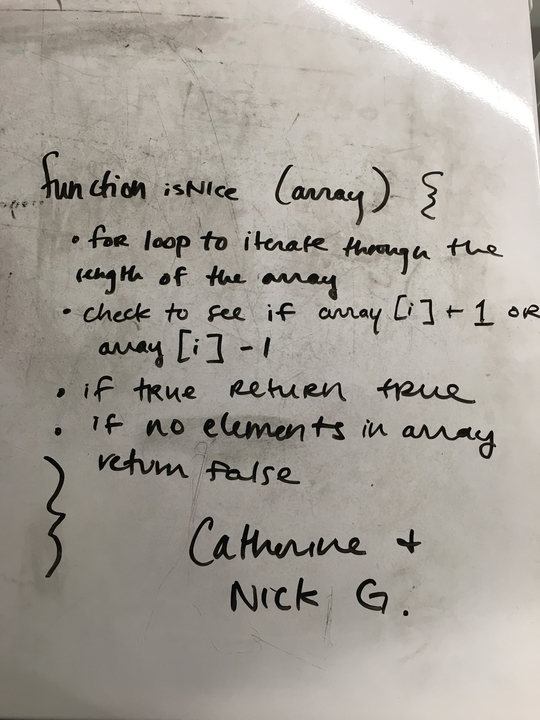 function isNice (array) {
• for loop to iterate through the
length of the array
• check to see if array [i] + 1 OR
array [i] - 1
• if true return true
• if no elements in array
return false
}
Catherine +
Nick G.